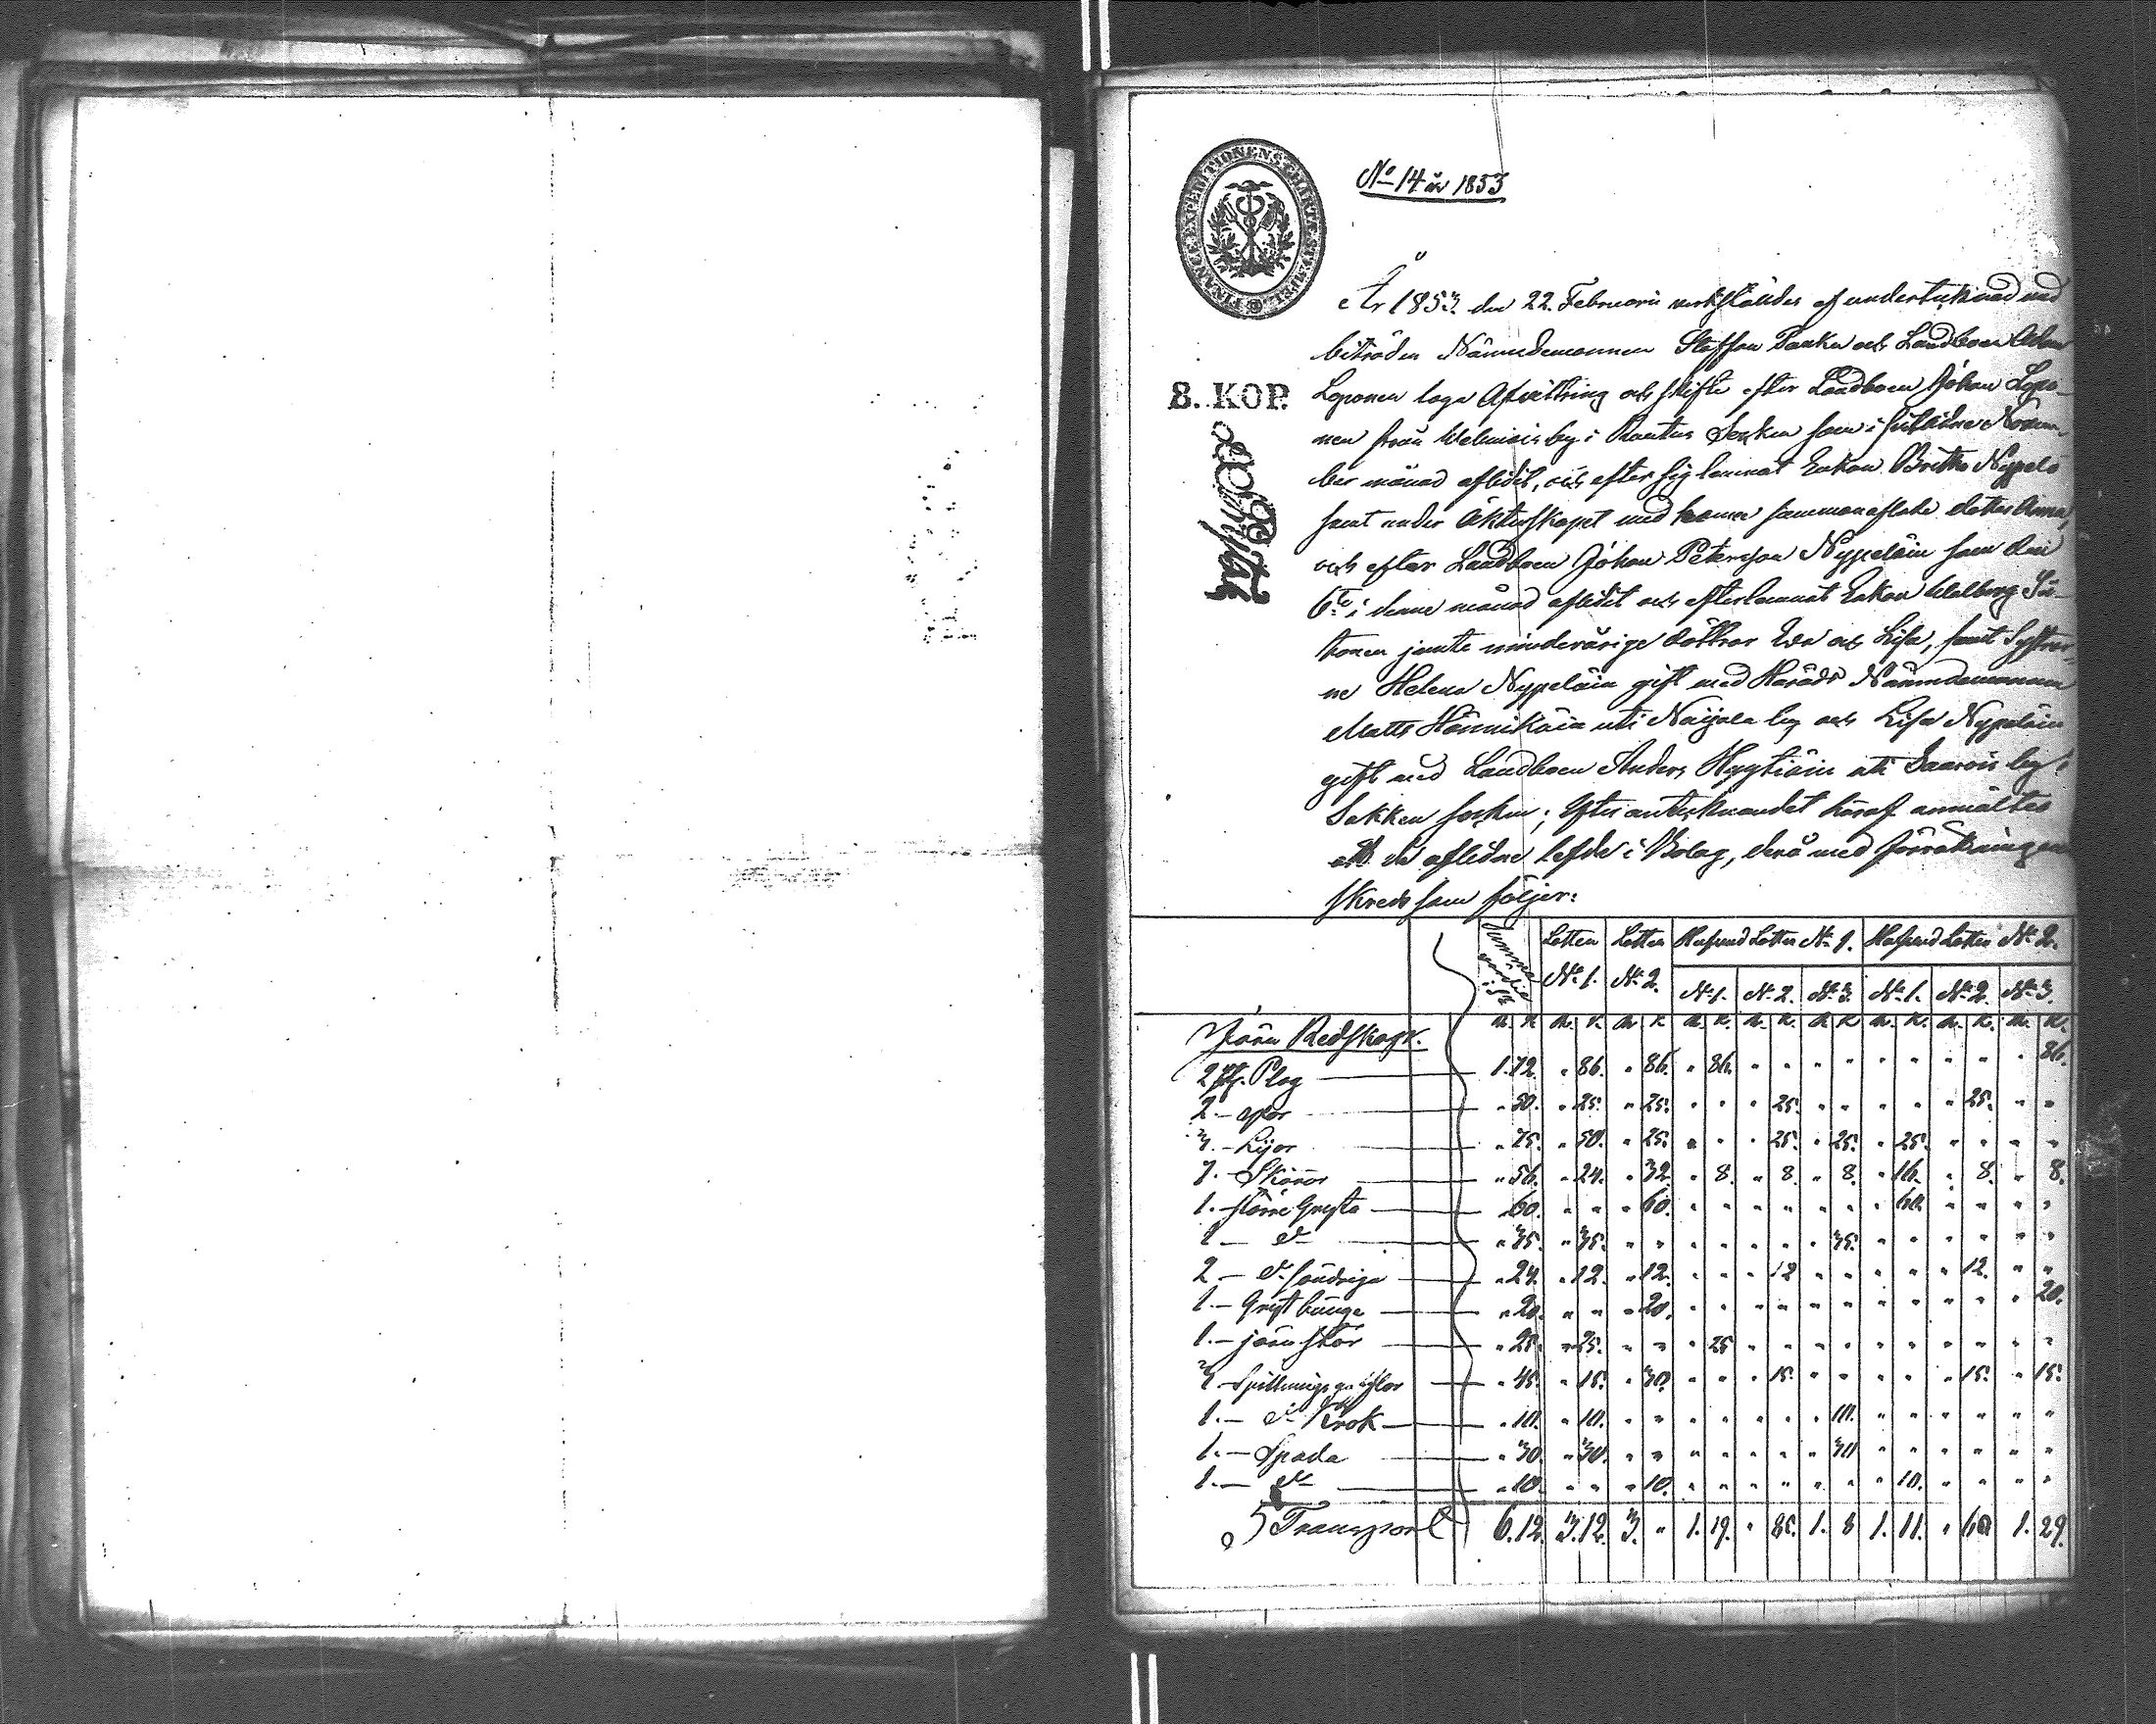 FINANCE-EXPEDITIONENS CHARTÆ STÆMPEL
No 14 år 1853
8. KOP.
År 1853. den 22. Februarii verkställdes af undertecknad med
biträden Nämndemannen Staffan Paukku och Landboen Adam
Loponen laga Afvittring och skifte efter Landboen Johan Lopo-
nen från by i Rautus Socken som i sistlidne Novem-
ber månad aflidit, och efter sig lemnat Enkan Britha Nypelö
samt under äktenskapet med henne sammanaflade dotter Anna,
och efter Landboen Johan Petersson Nypeläin som den
6te i denne månad aflidit och efterlemnat Enkan Walborg
jemte minderårige döttrar Eva och Lisa, samt Systrar-
ne Helena Nypeläin gift med Härads Nämndemannen
Matts Hännikäin uti Naijala by och Lisa Nypeläin
gift med Landboen Anders Hyytiäin uti by i
Sakkola socken; Efter antecknandet häraf anmältes
att de aflidne lefde i Bolag, derå med förrättningen
skreds som följer:
Summa värdet i S:r Lotten No 1. Lotten No 2. Lotten No 1. Lotten No 2.
No 1. No 2. No 3. No 1. No 2. No 3.
R. K. R. K. R. K. R. K. R. K. R. K. R. K. R. K. R. K.
Jern Redskap.
2 st. Plog 1.72. " 86. " 86. " 86. " " " " " " " " " 86.
2 - " 50. " 25. " 25. " " " 25. " " " " " 25. " "
3. - Lijor " 75. " 50. " 25. " " " 25. " 25. " 25. " " " "
7. - Skäror " 56. " 24. " 32. " 8. " 8. " 8. " 16. " 8. " 8.
1. - större Gryta " 60. " " " 60. " " " " " " " 60. " " " "
1 - d:o " 35. " 35. " " " " " " " 35. " " " " " "
2. - d:o söndriga " 24. " 12. " 12. " " " 12 " " " " " 12. " "
1. - Gryt bunge " 20. " " " 20. " " " " " " " " " " " 20.
1. - jern stör " 25. " 25. " " " 25 " " " " " " " " " "
3. - " 45. " 15. " 30. " " " 15. " " " " " 15. " 15.
1. - d:o Krok " 10. " 10. " " " " " " " 10. " " " " " "
1. - Spada " 30. " 30. " " " " " " " 30 " " " " " "
1. - d:o " 10. " " " 10. " " " " " " " 10. " " " "
Transport 6.12. 3.12. 3. " 1. 19. " 85. 1. 8 1. 11. " 60 1. 29.